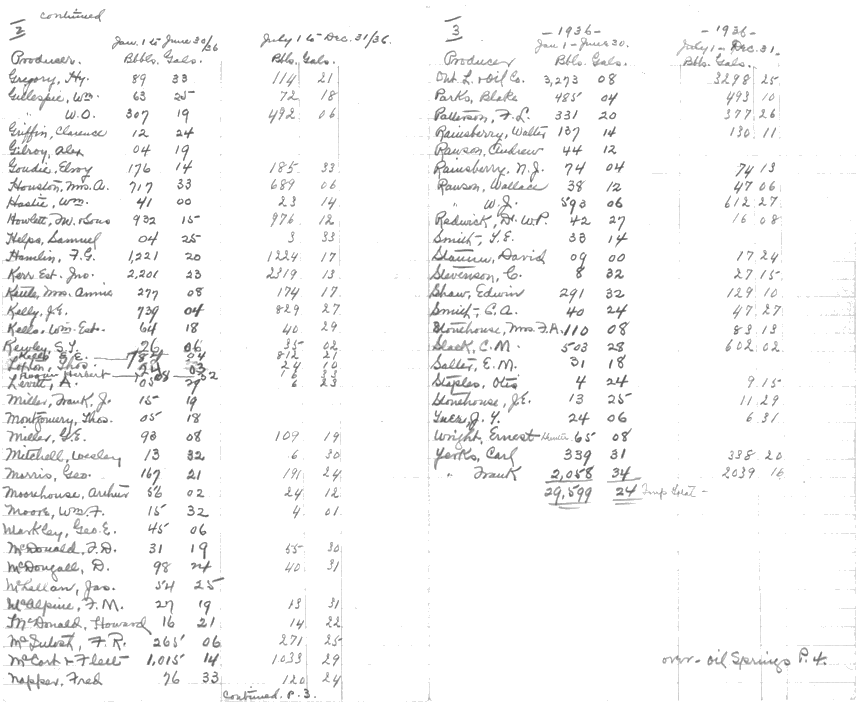 2 continued
Jan. 1 to June 30/36 July 1 to Dec. 31/36.
Producer. Bbls. Gals. Bbls. Gals.
Gregory, Hy. 89 33 114 21
Gillespie, Wm. 63 25 72 18
" W.O. 307 19 492 06
Griffin, Clarence 12 24
Gilroy, Alex 04 19
Goudie, Elroy 176 14 185 33
Houston, Mrs. A. 717 33 689 06
Hastie, Wm. 41 00 23 14
Howlett, M. & Sons 932 15 976 12
Helps, Samuel 04 25 3 33
Hamlin, F.G. 1,221 20 1224 17
Kerr Est. Jno. 2,201 23 2319 13
Kettle, Mrs. Annie 277 08 174 17
Kelly, J.E. 739 04 829 27
Kells, Wm. Est. 64 18 40 29
Kewley, S.Y. 26 06 35 02
S.E. 04 812 21
Lofton, Thos. 03 24 10
Herbert 08 32 16 33
Levitt, A. 05 6 23
Miller, Frank, J. 15 19
Montgomery, Thos. 05 18
Miller, G.E. 93 08 109 19
Mitchell, Wesley 13 32 6 30
Morris, Geo. 167 21 191 24
Moorehouse, Arthur 56 02 24 12
Moore, Wm. F. 15 32 4 01
Markley, Geo. E. 45 06
McDonald, F.D. 31 19 55 30
McDougall, D. 98 24 40 31
McLellan, Jas. 54 25
McAlpine, F.M. 27 19 13 31
McDonald, Howard 16 21 14 22
McIntosh, F.R. 265 06 271 25
McCort & Fleet 1,015 14 1033 29
Napper, Fred 76 33 120 24
Continued P. 3.
3 - 1936 - - 1936 -
Jan 1 - June 30. July 1 - Dec. 31.
Producer Bbls. Gals. Bbls. Gals.
Ont. L. & Oil Co. 3,273 08 3298 25
Parks, Blake 485 04 493 10
Patterson, F.L. 331 20 377 26
Rainsberry, Walter 137 14 130 11
Rawson, Andrew 44 12
Rainsberry, N.J. 74 04 74 13
Rawson, Wallace 38 12 47 06
" W.J. 593 06 612 27
Redwick, Dr. W.P. 42 27 16 08
Smith, Y.E. 33 14
David 09 00 17 24
Stevenson, C. 8 32 27 15
Shaw, Edwin 291 32 129 10
Smith, C.A. 40 24 47 27
Stonehouse, Mrs. F.A. 110 08 83 13
Slack, C.M. 503 28 602 02
Salter, E.M. 31 18
Staples, Otis 4 24 9 15
Stonehouse, J.E. 13 25 11 29
J.Y. 24 06 6 31
Wright, Ernest 65 08
Yerks, Carl 339 31 338 20
" Frank 2,058 34 2039 16
29,599 24 Imp
over - Oil Springs P. 4.